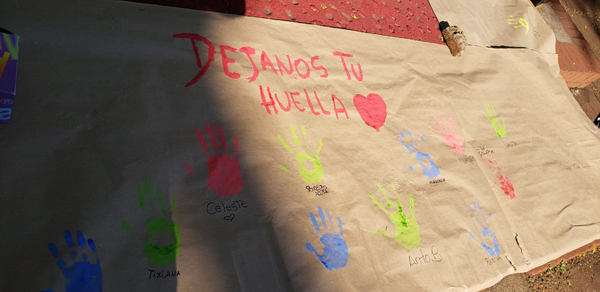 DEJANOS TU
HUELLA
Celeste
TIZIANA
Anto